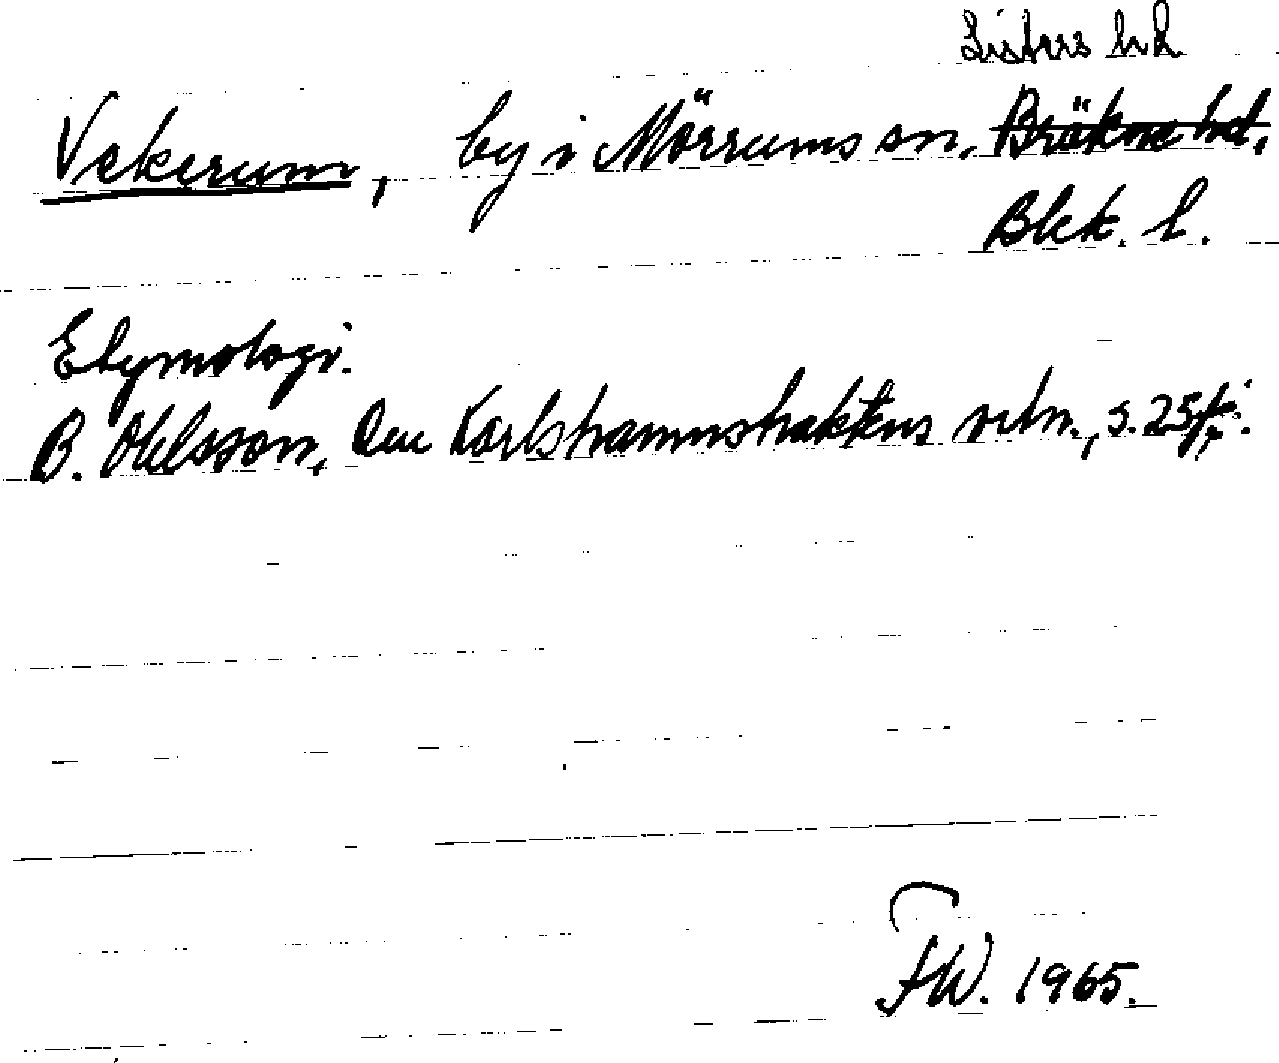 Listers hd
Vekerum, by i Mörrums sn, Bräkne hd,
Blek. l.
Etymologi.
B. Ohlsson, Den Karlshamnstraktens
s. 25
FW. 1965.